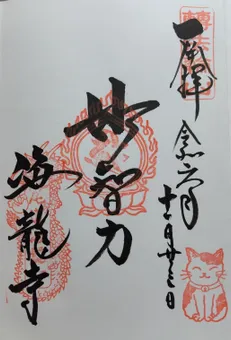 奉拝
令和六年
十一月廿三日
妙智力
海龍寺